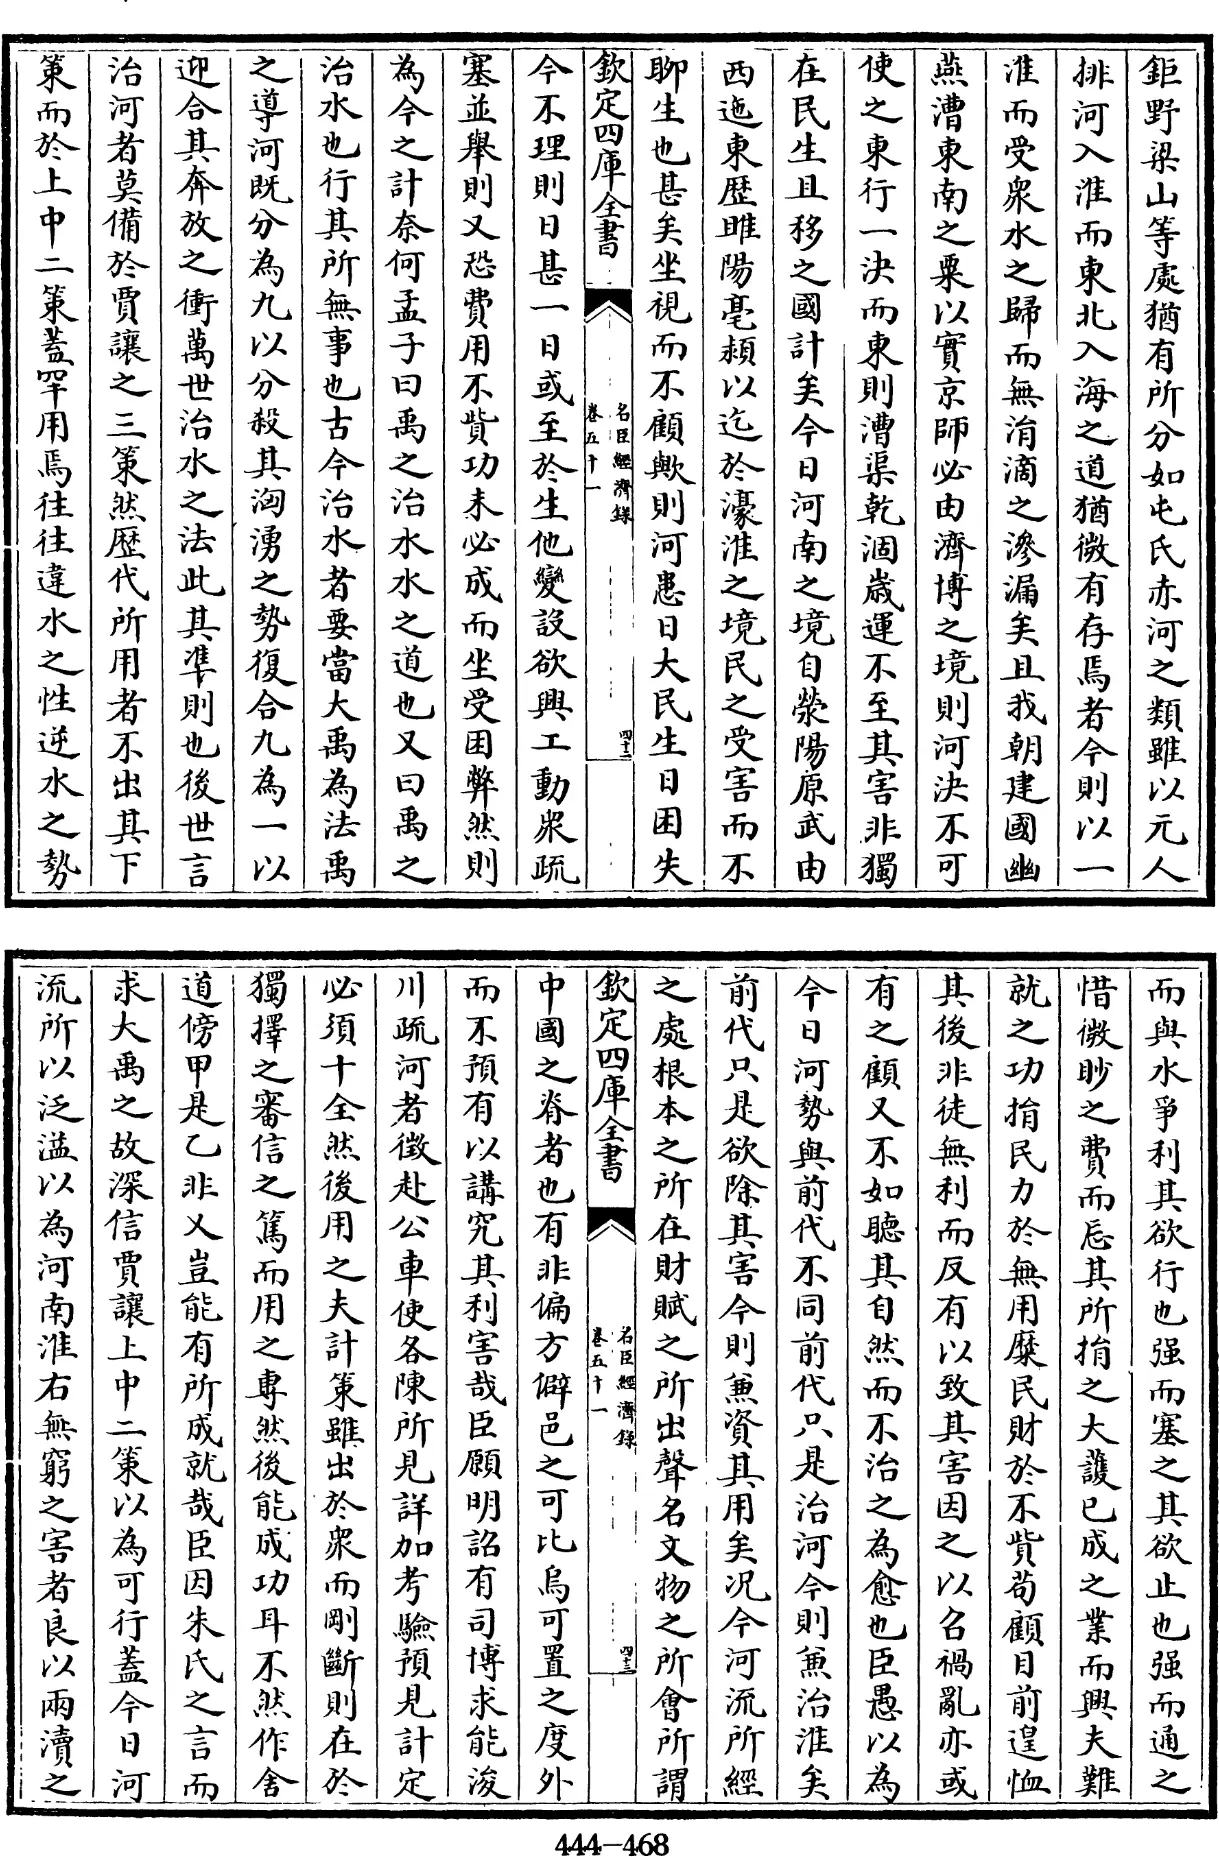 鉅野梁山等處猶有所分如屯氏赤河之類雖以元人
排河入淮而東北入海之道猶微有存焉者今則以一
淮而受衆水之歸而無涓滴之滲漏矣且我朝建國幽
燕漕東南之粟以實京師必由濟博之境則河決不可
使之東行一決而東則漕渠乾涸歲運不至其害非獨
在民生且移之國計矣今日河南之境自滎陽原武由
西迤東歷睢陽亳潁以迄於濠淮之境民之受害而不
聊生也甚矣坐視而不顧歟則河患日大民生日困失
欽定四庫全書
名臣經濟錄
卷五十一
四十二
今不理則日甚一日或至於生他變設欲興工動衆疏
塞並舉則又恐費用不貲功未必成而坐受困弊然則
為今之計奈何孟子曰禹之治水水之道也又曰禹之
治水也行其所無事也古今治水者要當大禹為法禹
之導河既分為九以分殺其洶湧之勢復合九為一以
迎合其奔放之衝萬世治水之法此其凖則也後世言
治河者莫備於賈讓之三策然歷代所用者不出其下
策而於上中二策蓋罕用焉往往違水之性逆水之勢
而與水爭利其欲行也强而塞之其欲止也强而通之
惜微眇之費而忘其所捐之大護已成之業而興夫難
就之功捐民力於無用糜民財於不貲苟顧目前遑恤
其後非徒無利而反有以致其害因之以召禍亂亦或
有之顧又不如聽其自然而不治之為愈也臣愚以為
今日河勢與前代不同前代只是治河今則兼治淮矣
前代只是欲除其害今則兼資其用矣況今河流所經
之處根本之所在財賦之所出聲名文物之所會所謂
欽定四庫全書
名臣經濟錄
卷五十一
四十三
中國之脊者也有非偏方僻邑之可比烏可置之度外
而不預有以講究其利害哉臣願明詔有司博求能浚
川疏河者徵赴公車使各陳所見詳加考驗預見計定
必須十全然後用之夫計策雖出於衆而剛斷則在於
獨擇之審信之篤而用之專然後能成功耳不然作舍
道傍甲是乙非乂豈能有所成就哉臣因朱氏之言而
求大禹之故深信賈讓上中二策以為可行蓋今日河
流所以泛溢以為河南淮右無窮之害者良以兩瀆之
444-468